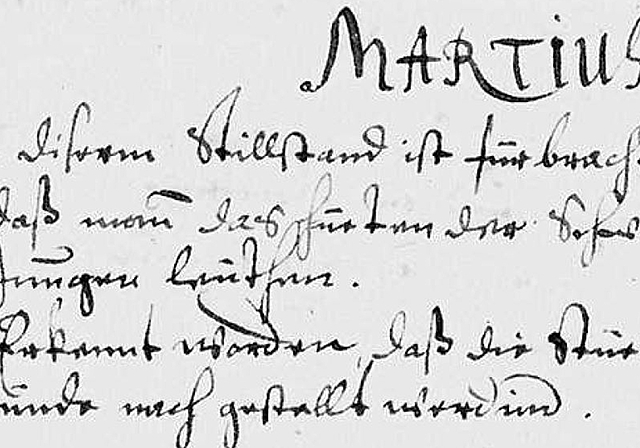 MARTIUS
disem Stillstand ist fürbrach
daß mann das hüeten der
jungen leüthen.
Erkennt worden, daß die
nach gestellt werdind.